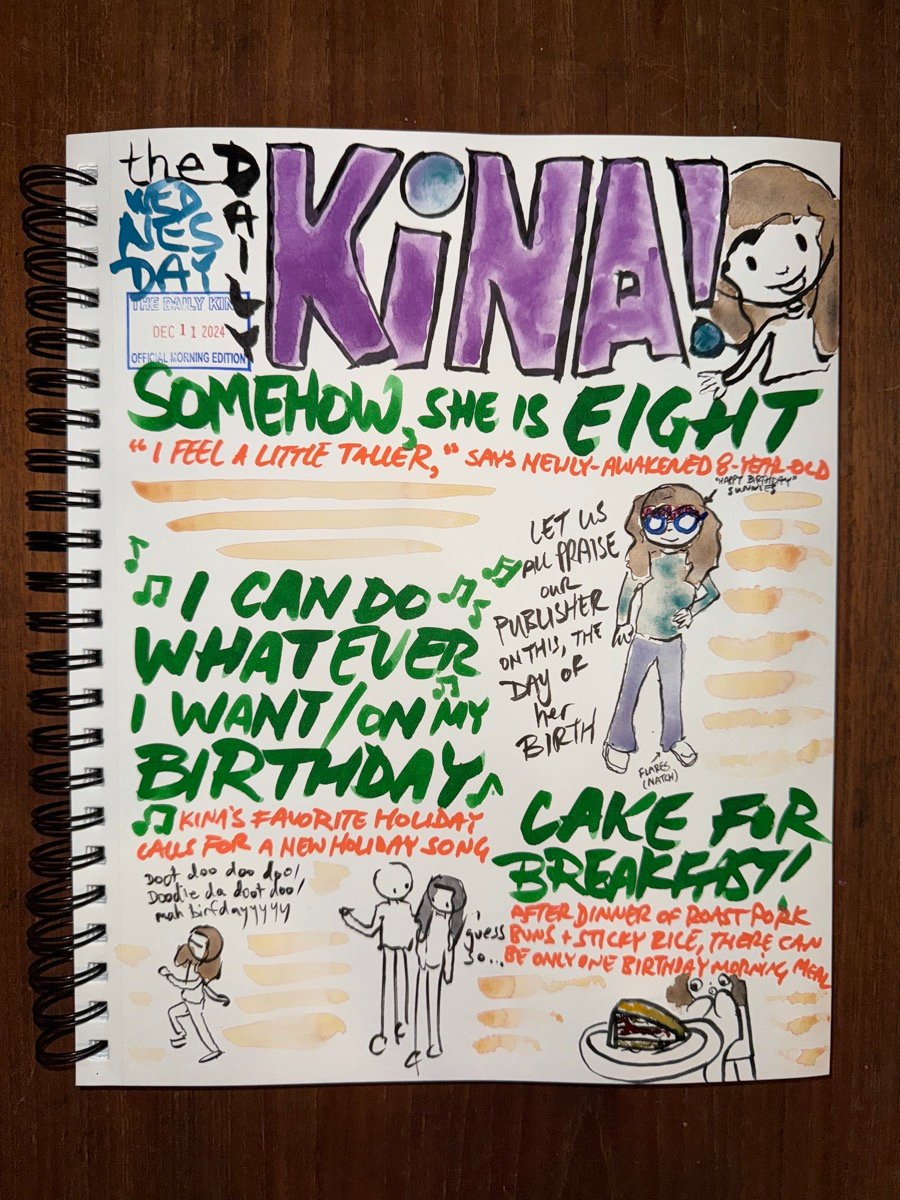 the DAILY
KiNA!
WEDNESDAY
THE DAILY KINA
DEC 11 2024
OFFICIAL MORNING EDITION
SOMEHOW, SHE IS EIGHT
"I FEEL A LITTLE TALLER," SAYS NEWLY-AWAKENED 8-YEAR-OLD
"HAPPY BIRTHDAY"
SUNNIES
LET US
ALL PRAISE
OUR
PUBLISHER
ON THIS, THE
DAY OF
her
BIRTH
FLARES
(NATCH)
I CAN DO
WHATEVER
I WANT/ON MY
BIRTHDAY
KINA'S FAVORITE HOLIDAY
CALLS FOR A NEW HOLIDAY SONG
Doot doo doo doo/
Doodie da doot doo/
mah birfdayyyyy
I
guess
so...
CAKE FOR
BREAKFAST!
AFTER DINNER OF ROAST PORK
BUNS + STICKY RICE, THERE CAN
BE ONLY ONE BIRTHDAY MORNING MEAL